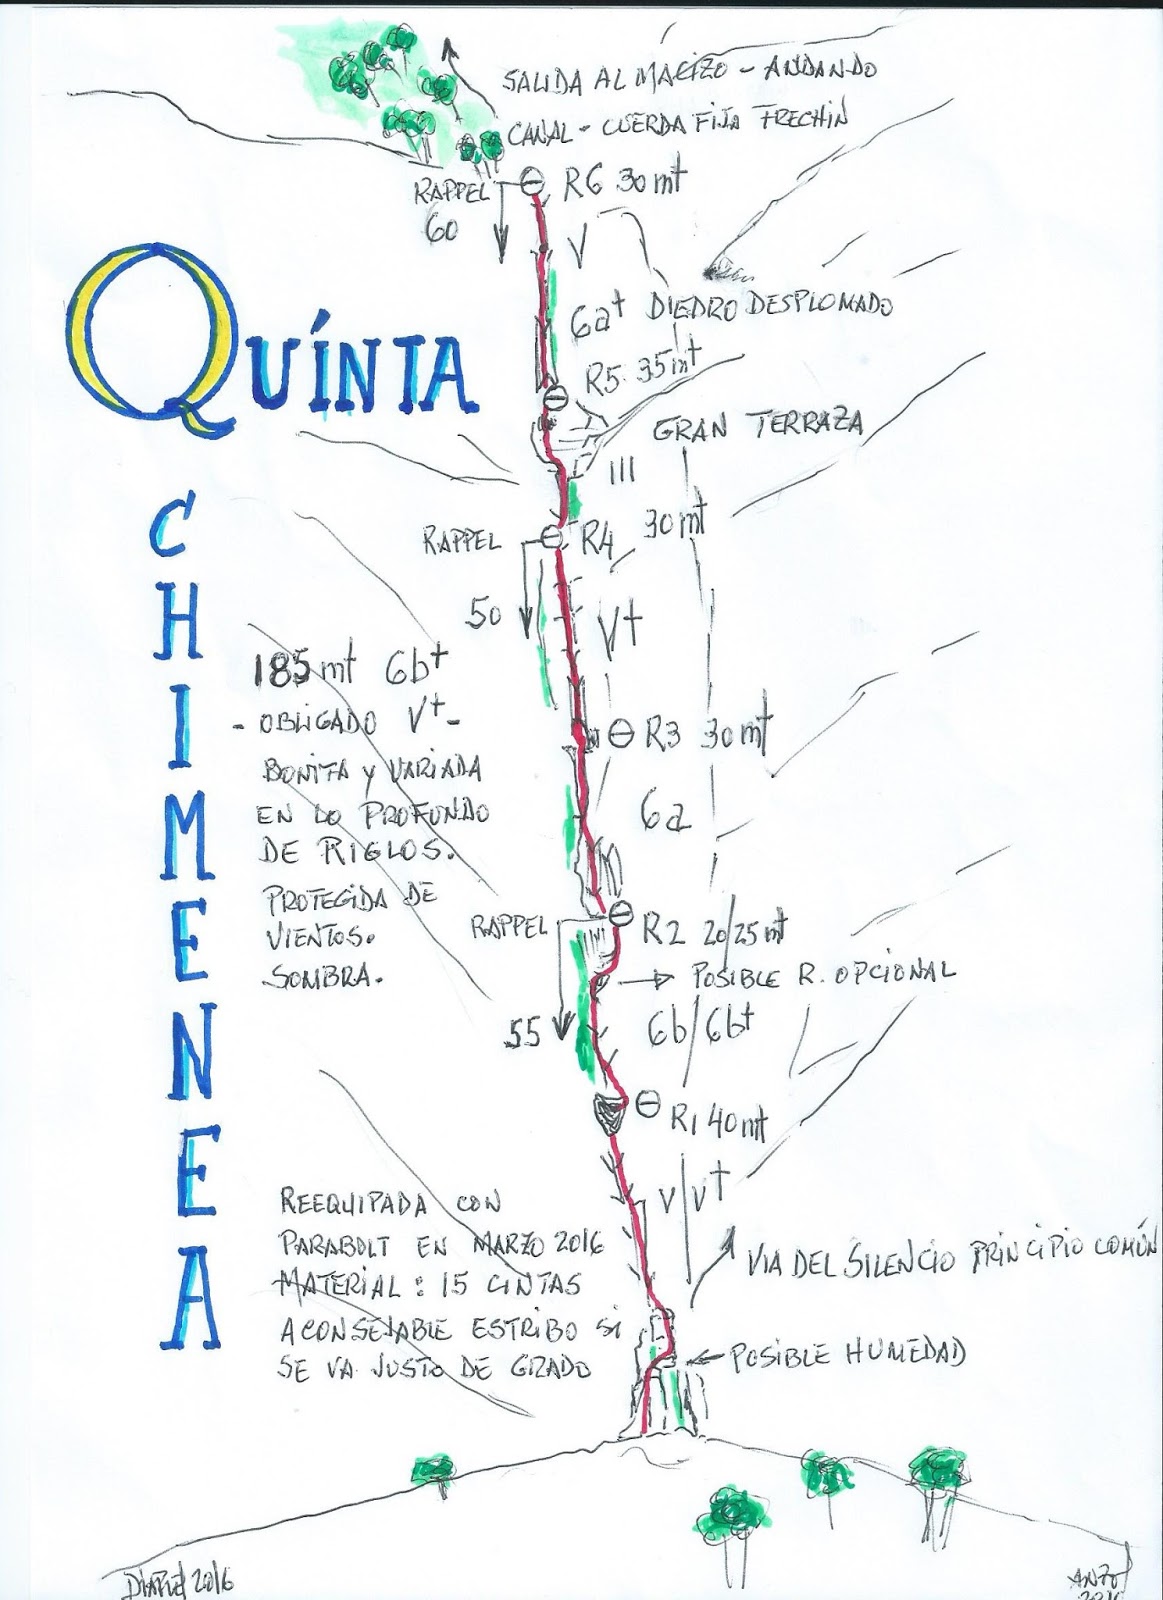 SALIDA AL MACIZO - ANDANDO
CANAL - CUERDA FIJA FRECHIN
RAPPEL
60
R6 30 mt
V
6a+ DIEDRO DESPLOMADO
QUÍNTA
R5 35 mt
GRAN TERRAZA
III
CHIMENEA
RAPPEL
R4
30 mt
50
V+
185 mt 6b+
- OBLIGADO V+ -
BONITA y VARIADA
EN LO PROFUNDO
DE RIGLOS.
PROTEGIDA DE
VIENTOS.
SOMBRA.
R3 30 mt
6a
RAPPEL
R2 20/25 mt
POSIBLE R. OPCIONAL
55
6b/6b+
R1 40 mt
V/V+
REEQUIPADA CON
PARABOLT EN MARZO 2016
MATERIAL: 15 CINTAS
ACONSEJABLE ESTRIBO SI
SE VA JUSTO DE GRADO
VIA DEL SILENCIO PRINCIPIO COMÚN
POSIBLE HUMEDAD
2016
2016